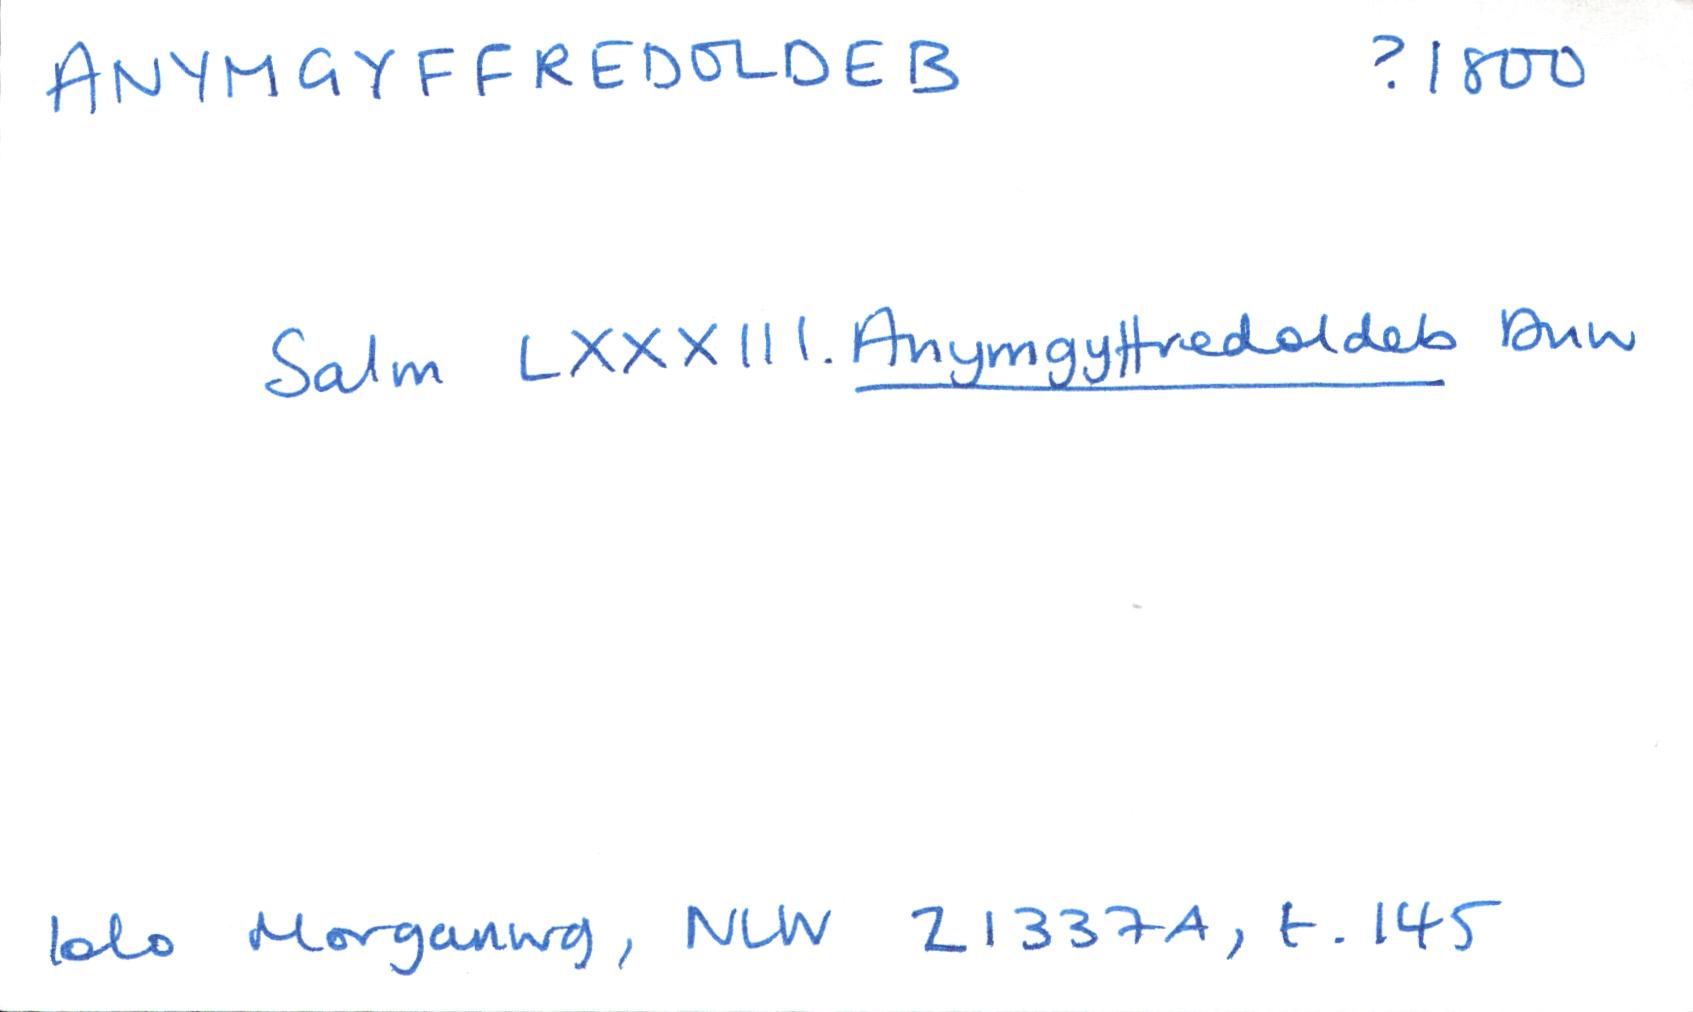 ANYMGYFFREDOLDEB ?1800
Salm LXXXIII. Anymgyffredoldeb Duw
Iolo Morganwg, NLW 21337A, t. 145